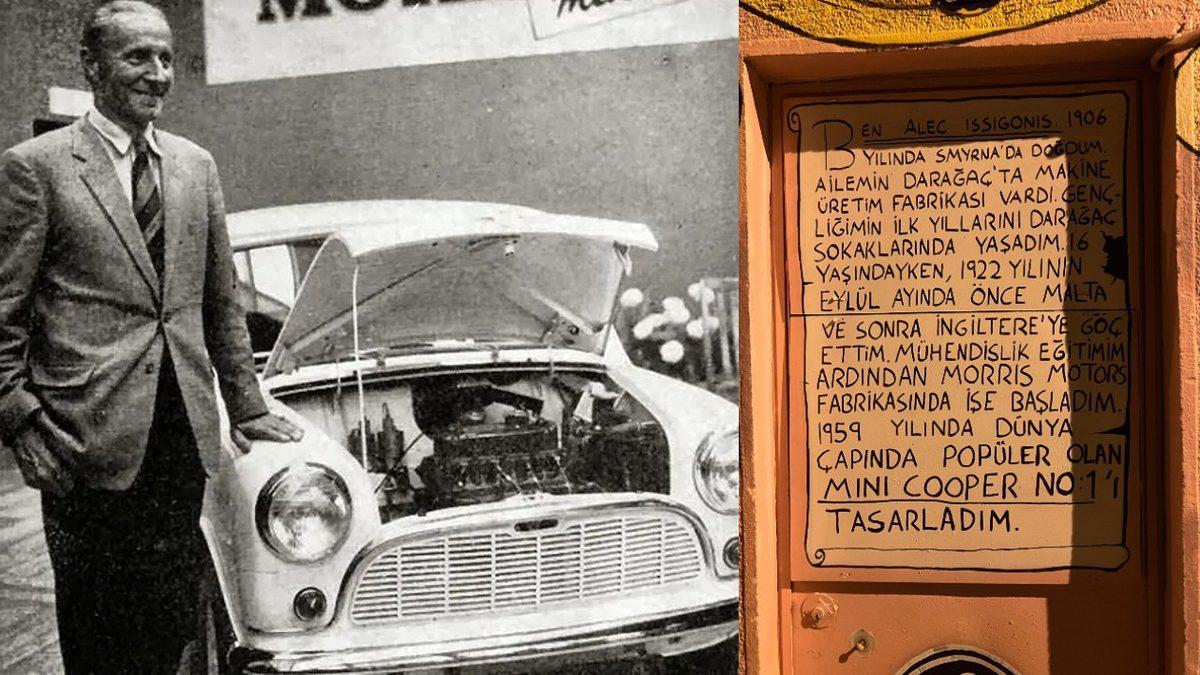 BEN ALEC ISSIGONIS. 1906
YILINDA SMYRNA'DA DOĞDUM.
AILEMIN DARAĞAÇ'TA MAKINE
ÜRETIM FABRIKASI VARDI. GENÇ-
LIĞIMIN İLK YILLARINI DARAĞAÇ
SOKAKLARINDA YAŞADIM. 16
YAŞINDAYKEN, 1922 YILININ
EYLÜL AYINDA ÖNCE MALTA
VE SONRA İNGILTERE'YE GÖÇ
ETTIM. MÜHENDISLIK EĞITIMIM
ARDINDAN MORRIS MOTORS
FABRIKASINDA İŞE BAŞLADIM.
1959 YILINDA DÜNYA
ÇAPINDA POPÜLER OLAN
MINI COOPER NO:1'I
TASARLADIM.